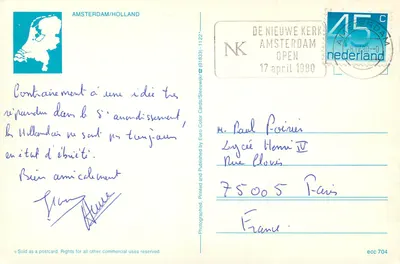 AMSTERDAM/HOLLAND
Contrairement à une idée très
répandue dans le 5e arrondissement,
les Hollandais ne sont pas toujours
en état d'ébriété.
Bien amicalement
DE NIEUWE KERK
AMSTERDAM
OPEN
17 april 1980
NK
45 c
nederland
M. Paul
Lycée Henri IV
Rue Clovis
75005 Paris
France
Photographed, Printed and Published by
Sold as a postcard. Rights for all other commercial uses reserved.
ecc 704